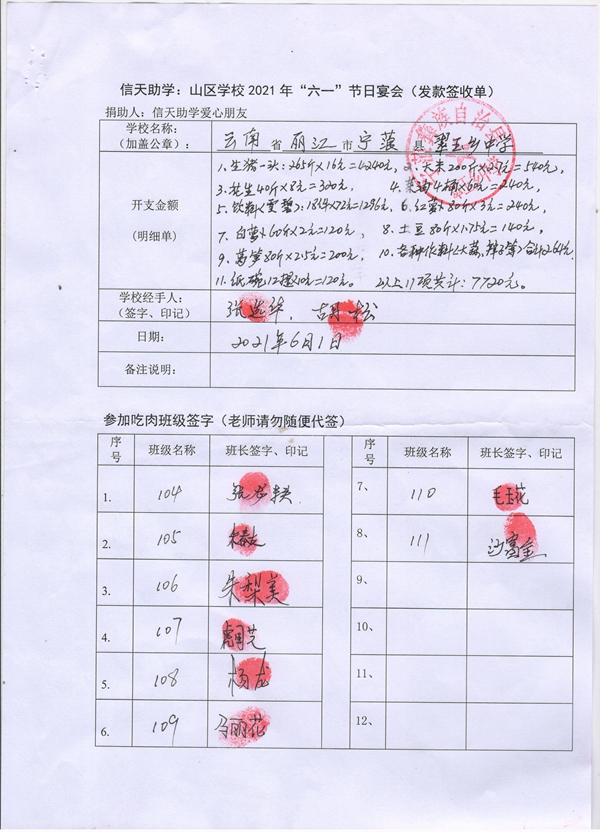 信天助学：山区学校2021年“六一”节日宴会（发款签收单）
捐助人：信天助学爱心朋友
学校名称：
（加盖公章）：
云南 省 丽江 市 宁蒗 县 翠玉乡中学
彝族自治县
开支金额
（明细单）
1.生猪一头：265斤×16元=4240元，2.大米200斤×2.7元=540元，
3.花生40斤×8元=320元， 4.菜油4桶×60元=240元，
5.饮料（雪碧）：18件×72元=1296元，6.红萝卜80斤×3元=240元，
7.白萝卜60斤×2元=120元， 8.土豆80斤×1.75元=140元，
9.莴笋80斤×2.5元=200元， 10.各种作料（大蒜、辣子等）合计264元，
11.纸碗12提×10元=120元。 以上11项共计：7720元。
学校经手人：
（签字、印记）
张选华、胡一松
日期：
2021年6月1日
备注说明：
参加吃肉班级签字（老师请勿随便代签）
序号 班级名称 班长签字、印记 序号 班级名称 班长签字、印记
1. 104 7、 110 毛玉花
2. 105 8、 111 沙富金
3. 106 朱梨美 9、
4. 107 10、
5. 108 杨龙 11、
6. 109 马丽花 12、